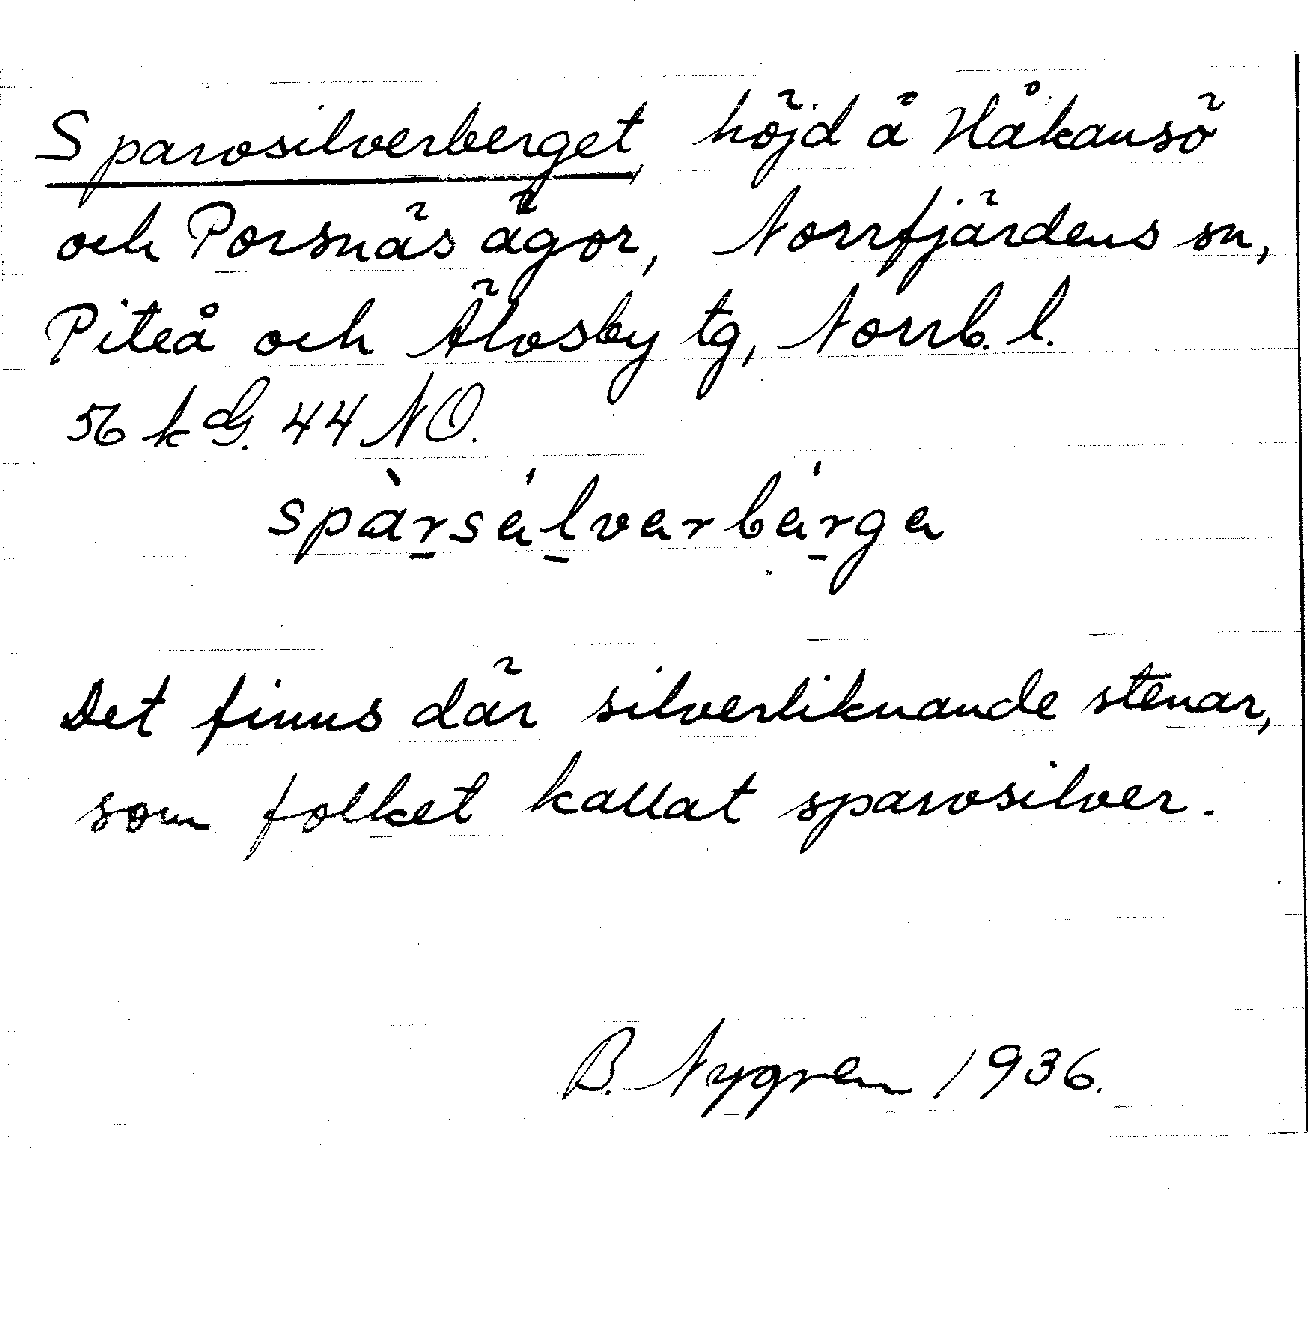 Sparvsilverberget, höjd å Håkansö
och Porsnäs ägor, Norrfjärdens sn,
Piteå och Älvsby tg, Norrb. l.
56 k G. 44 NO.
spàrsélverbérge
Det finns där silverliknande stenar,
som folket kallat sparvsilver.
B. Nygren 1936.